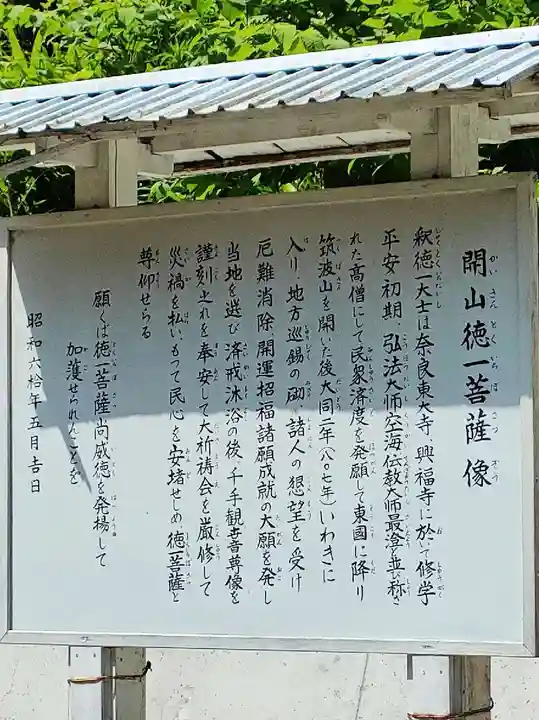 開山徳一菩薩像
釈徳一大士は奈良東大寺、興福寺に於いて修学
平安初期、弘法大師空海伝教大師最澄と並び称さ
れた高僧にして民衆済度を発願して東國に降り
筑波山を開いた後大同二年(八〇七年)いわきに
入り、地方巡錫の砌、諸人の懇望を受け
厄難消除開運招福諸願成就の大願を発し
当地を選び済戒沐浴の後、千手観音尊像を
謹刻之れを奉安して大祈祷会を厳修して
災禍を払い、もって民心を安堵せしめ、徳一菩薩と
尊仰せらる
願くば徳一菩薩尚威徳を発揚して
加護せられんことを
昭和六拾年五月吉日